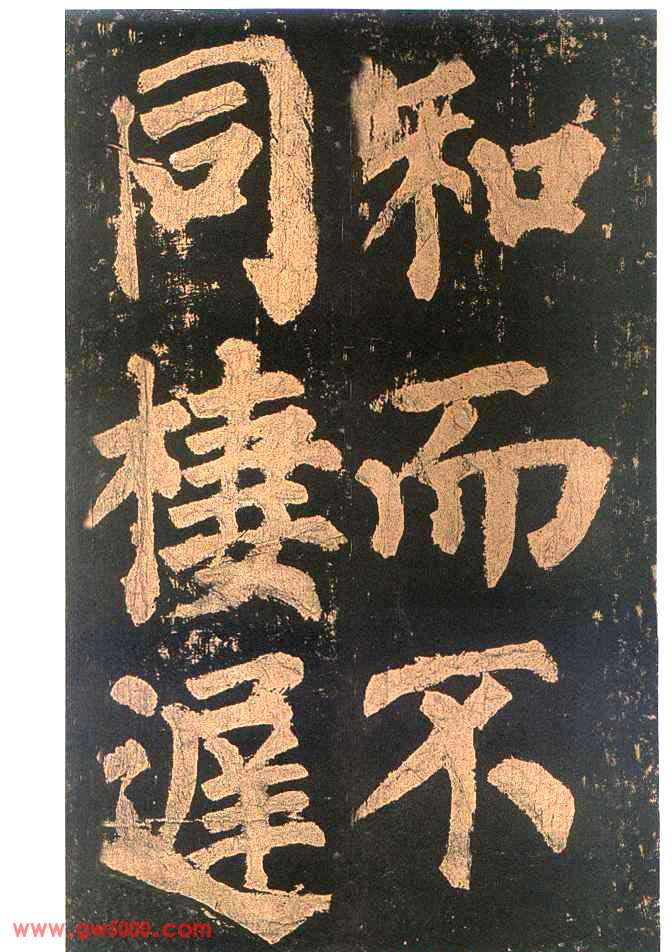 和而不
同棲遲
www.gw5000.com